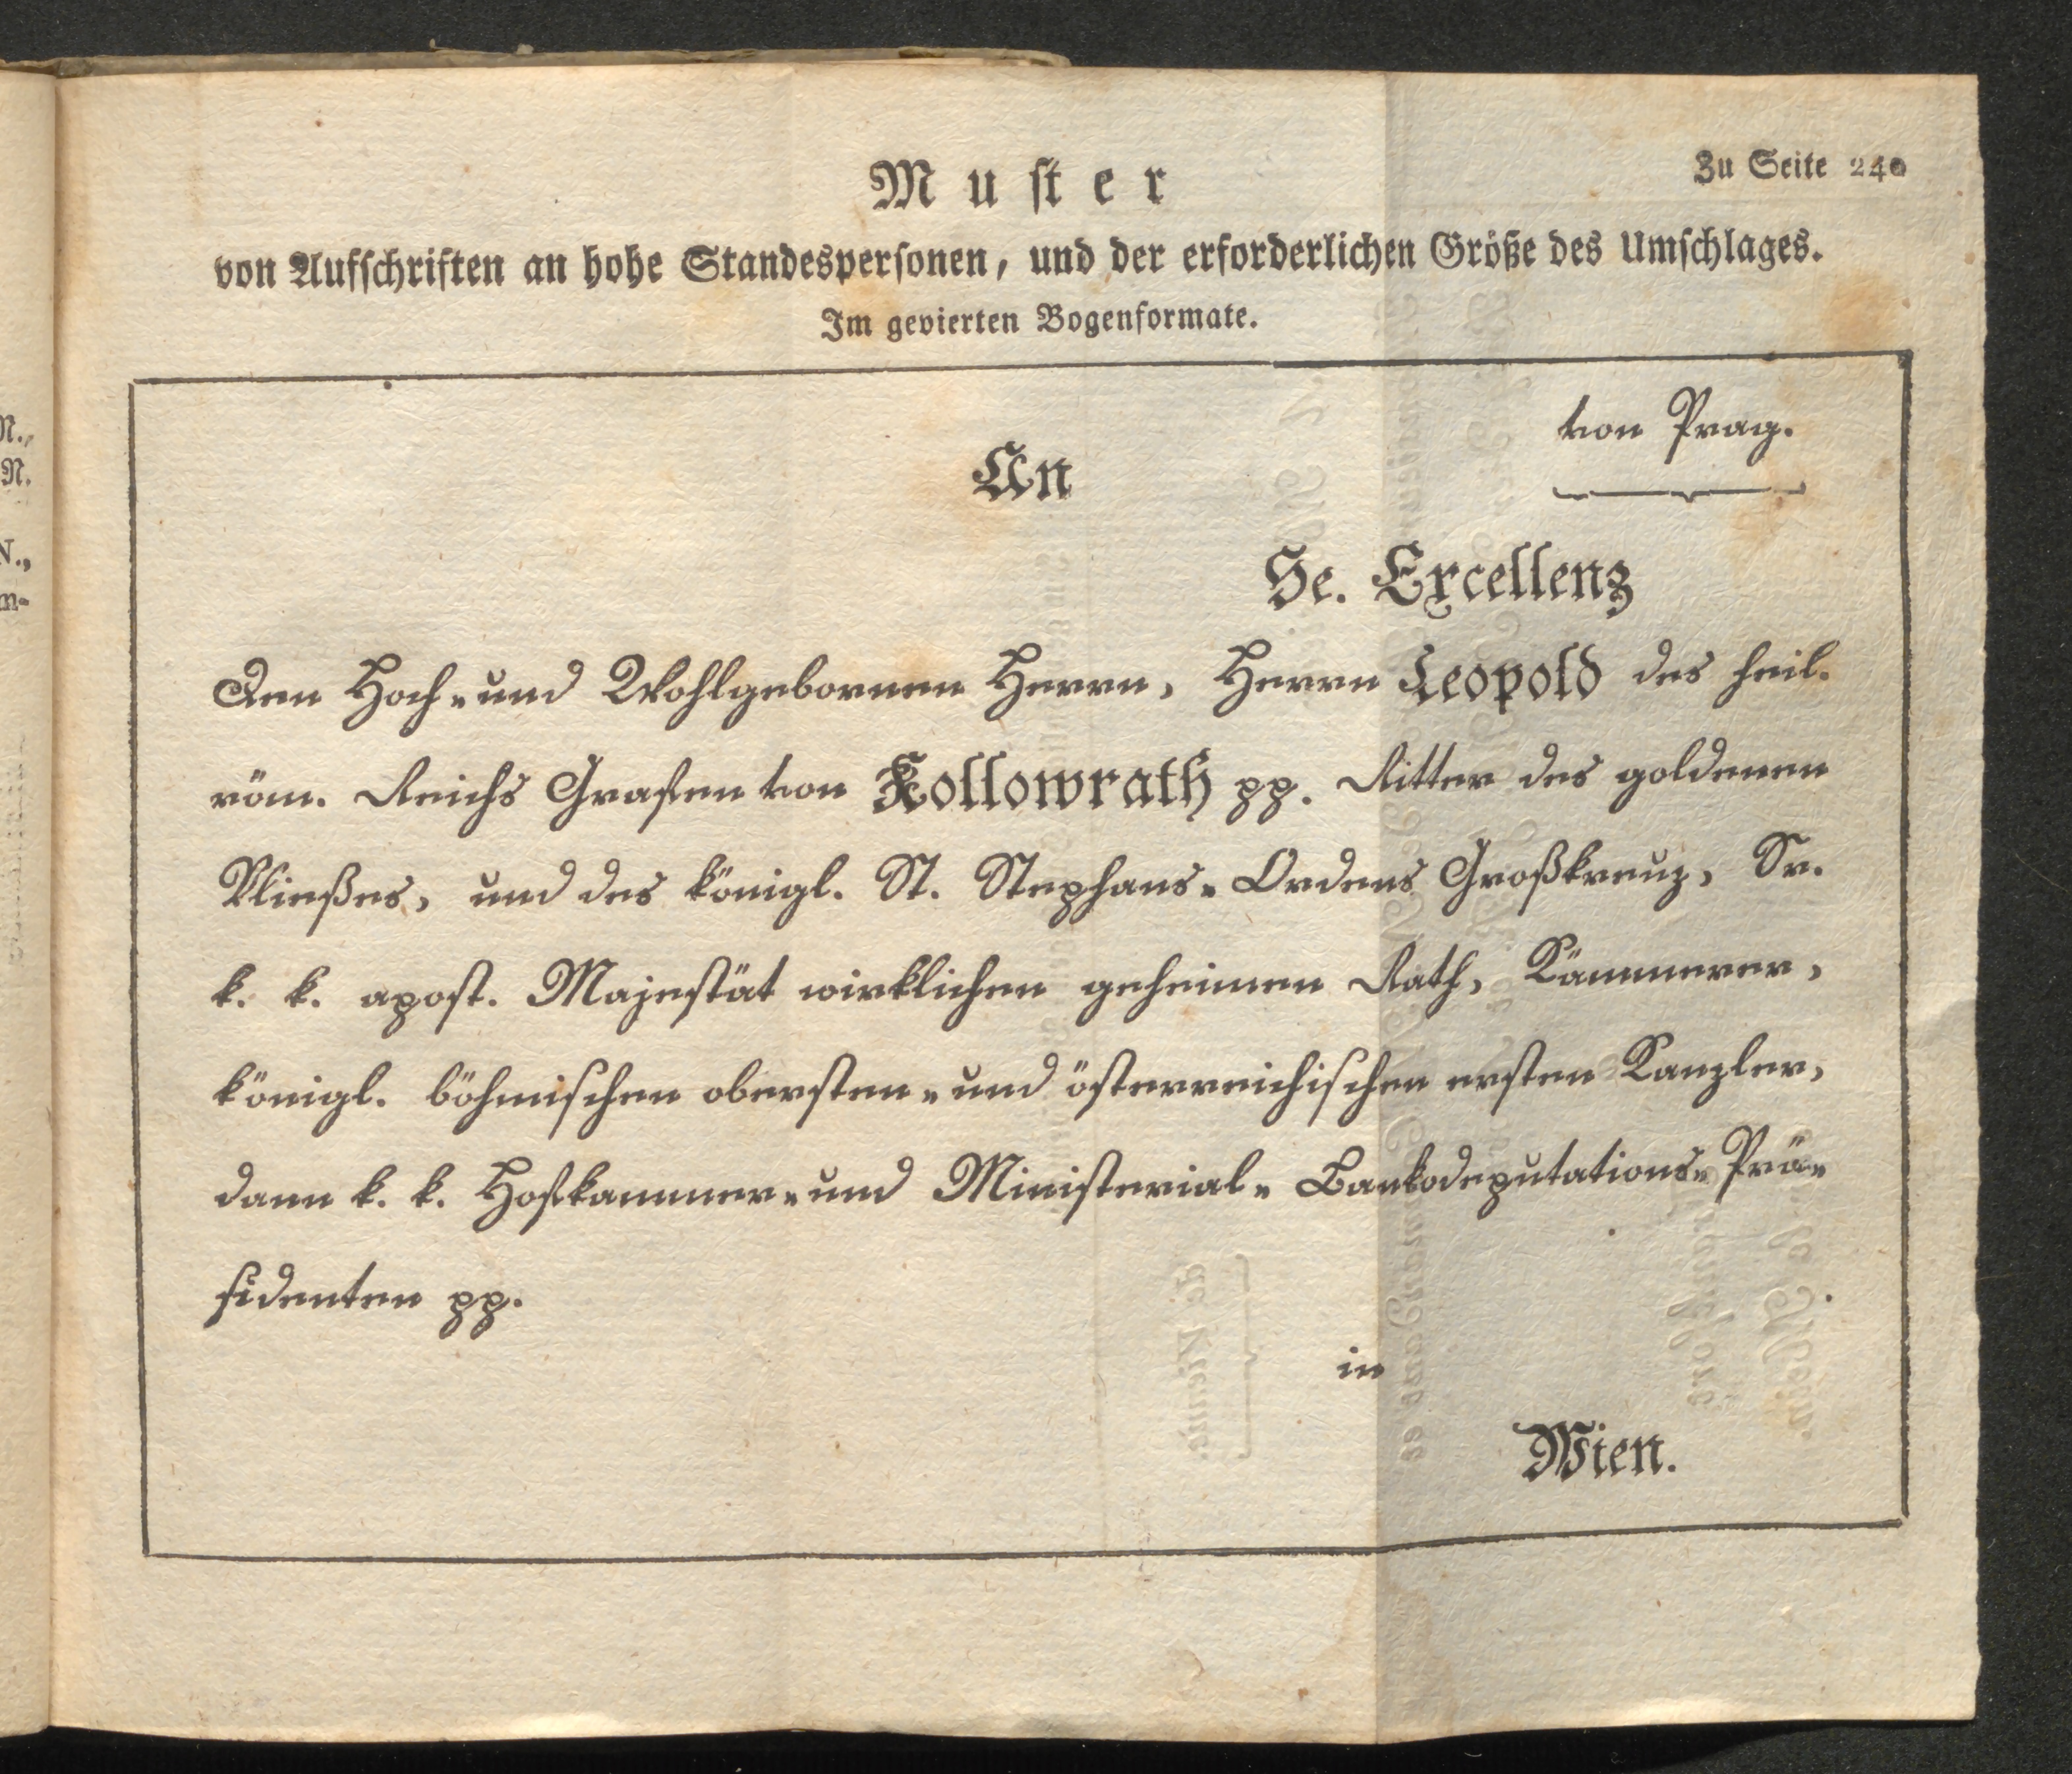 Zu Seite 240
Muster
von Aufschriften an hohe Standespersonen, und der erforderlichen Größe des Umschlages.
Im gevierten Bogenformate.
von Prag.
An
Se. Excellenz
Den Hoch- und Wohlgebornen Herrn, Herrn Leopold des heil.
röm. Reichs Grafen von Kollowrath pp. Ritter des goldenen
Vließes, und des königl. St. Stephans-Ordens Großkreuz, Sr.
k. k. apost. Majestät wirklichen geheimen Rath, Kämmerer,
königl. böhmischen obersten- und österreichischen ersten Kanzler,
dann k. k. Hofkammer- und Ministerial-Bankodeputations-Prä-
sidenten pp.
in
Wien.
N.,
N.
N.,
m-